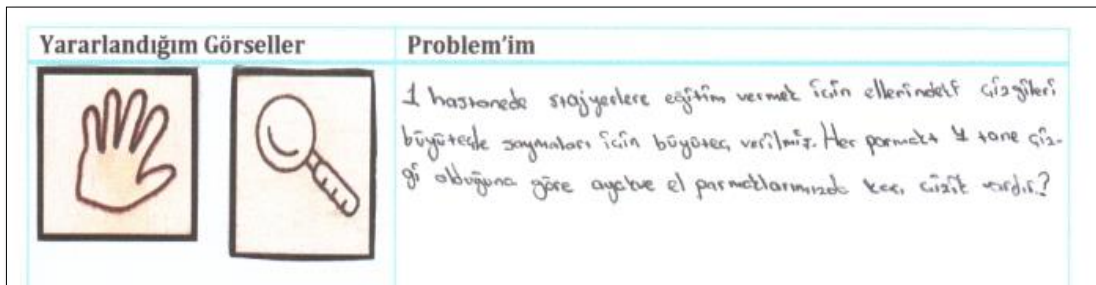 Yararlandığım Görseller
Problem'im
1 hastanede stajyerlere eğitim vermek için ellerindeki çizgileri
büyüteçle saymaları için büyüteç verilmiş. Her parmakt 4 tane çiz-
gi olduğuna göre ayak ve el parmaklarımızda kaç çizik vardır?